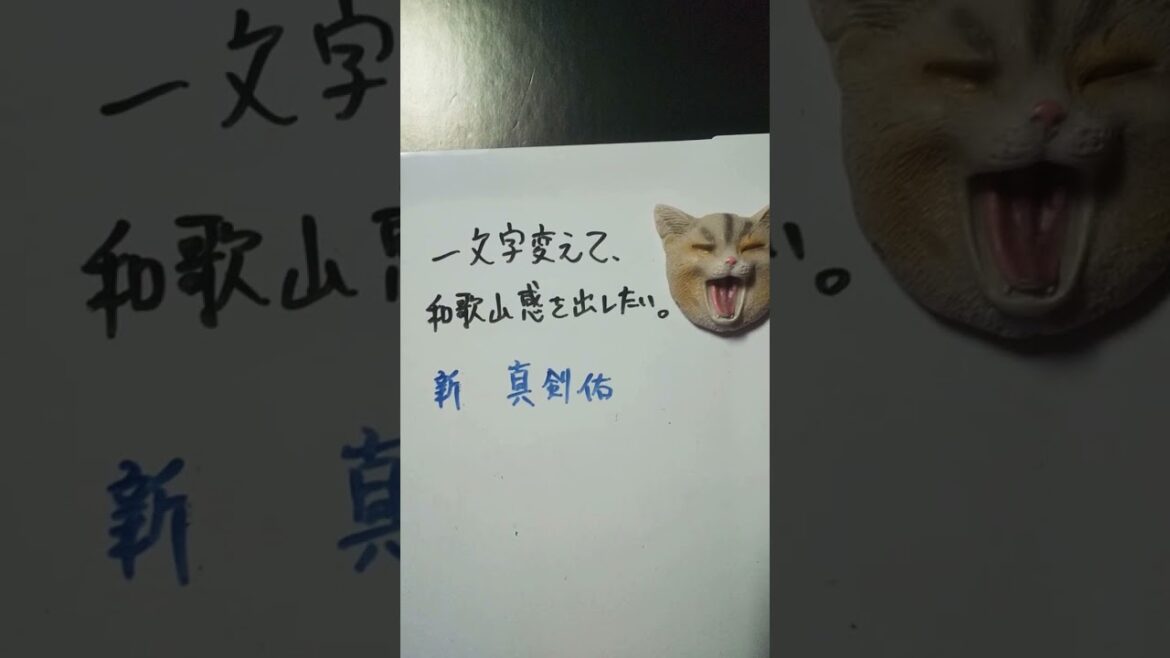 一文字変えて、
和歌山感を出したい。
新 真剣佑